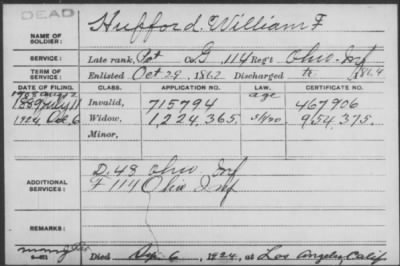 DEAD
NAME OF SOLDIER: Hufford, William F
SERVICE: Late rank, Pvt Co G, 114 Regt Ohio Inf
TERM OF SERVICE: Enlisted Oct 29, 1862 Discharged 1864
DATE OF FILING. CLASS. APPLICATION NO. LAW. CERTIFICATE NO.
1889 July 11 Invalid, 715794 age 467906
1924 Dec 6 Widow, 1,224,365 954,375
Minor,
ADDITIONAL SERVICES:
D. 48 Ohio Inf
F 114 Ohio Inf
REMARKS:
Died 6, 1924, at Los Angeles, Calif